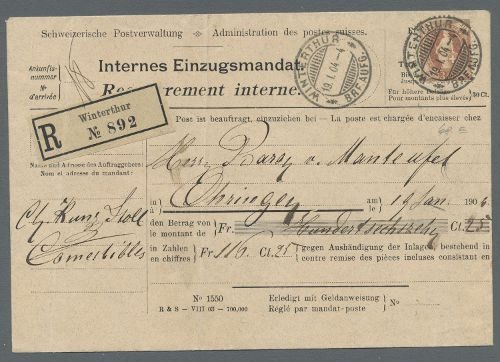 Schweizerische Postverwaltung • Administration des postes suisses.
Ankunfts-
nummer
No
d'arrivée
Internes Einzugsmandat.
Recouvrement interne.
WINTERTHUR
19.I.04.-4
BRF.AUFG.
WINTERTHUR
BRF.AUFG.
30 Ct.
Für höhere
Pour montants plus élevés
R
Winterthur
No 892
Post ist beauftragt, einzuziehen bei — La poste est chargée d'encaisser chez
Name und Adresse des Auftraggebers:
Nom et adresse du mandant:
Herrn Baron v. Manteufel
in
à
Ohringen
am
le
Jan. 190
Ch. Kunz Stoll
Comestibles
den Betrag von
le montant de
Fr.
Ct. 25
in Zahlen
en chiffres
Fr. 116. Ct. 25
gegen Aushändigung der Inlagen, bestehend in
contre remise des pièces incluses consistant en
No 1550
R & S – VIII 03 – 700,000
Erledigt mit Geldanweisung
Réglé par mandat-poste
No